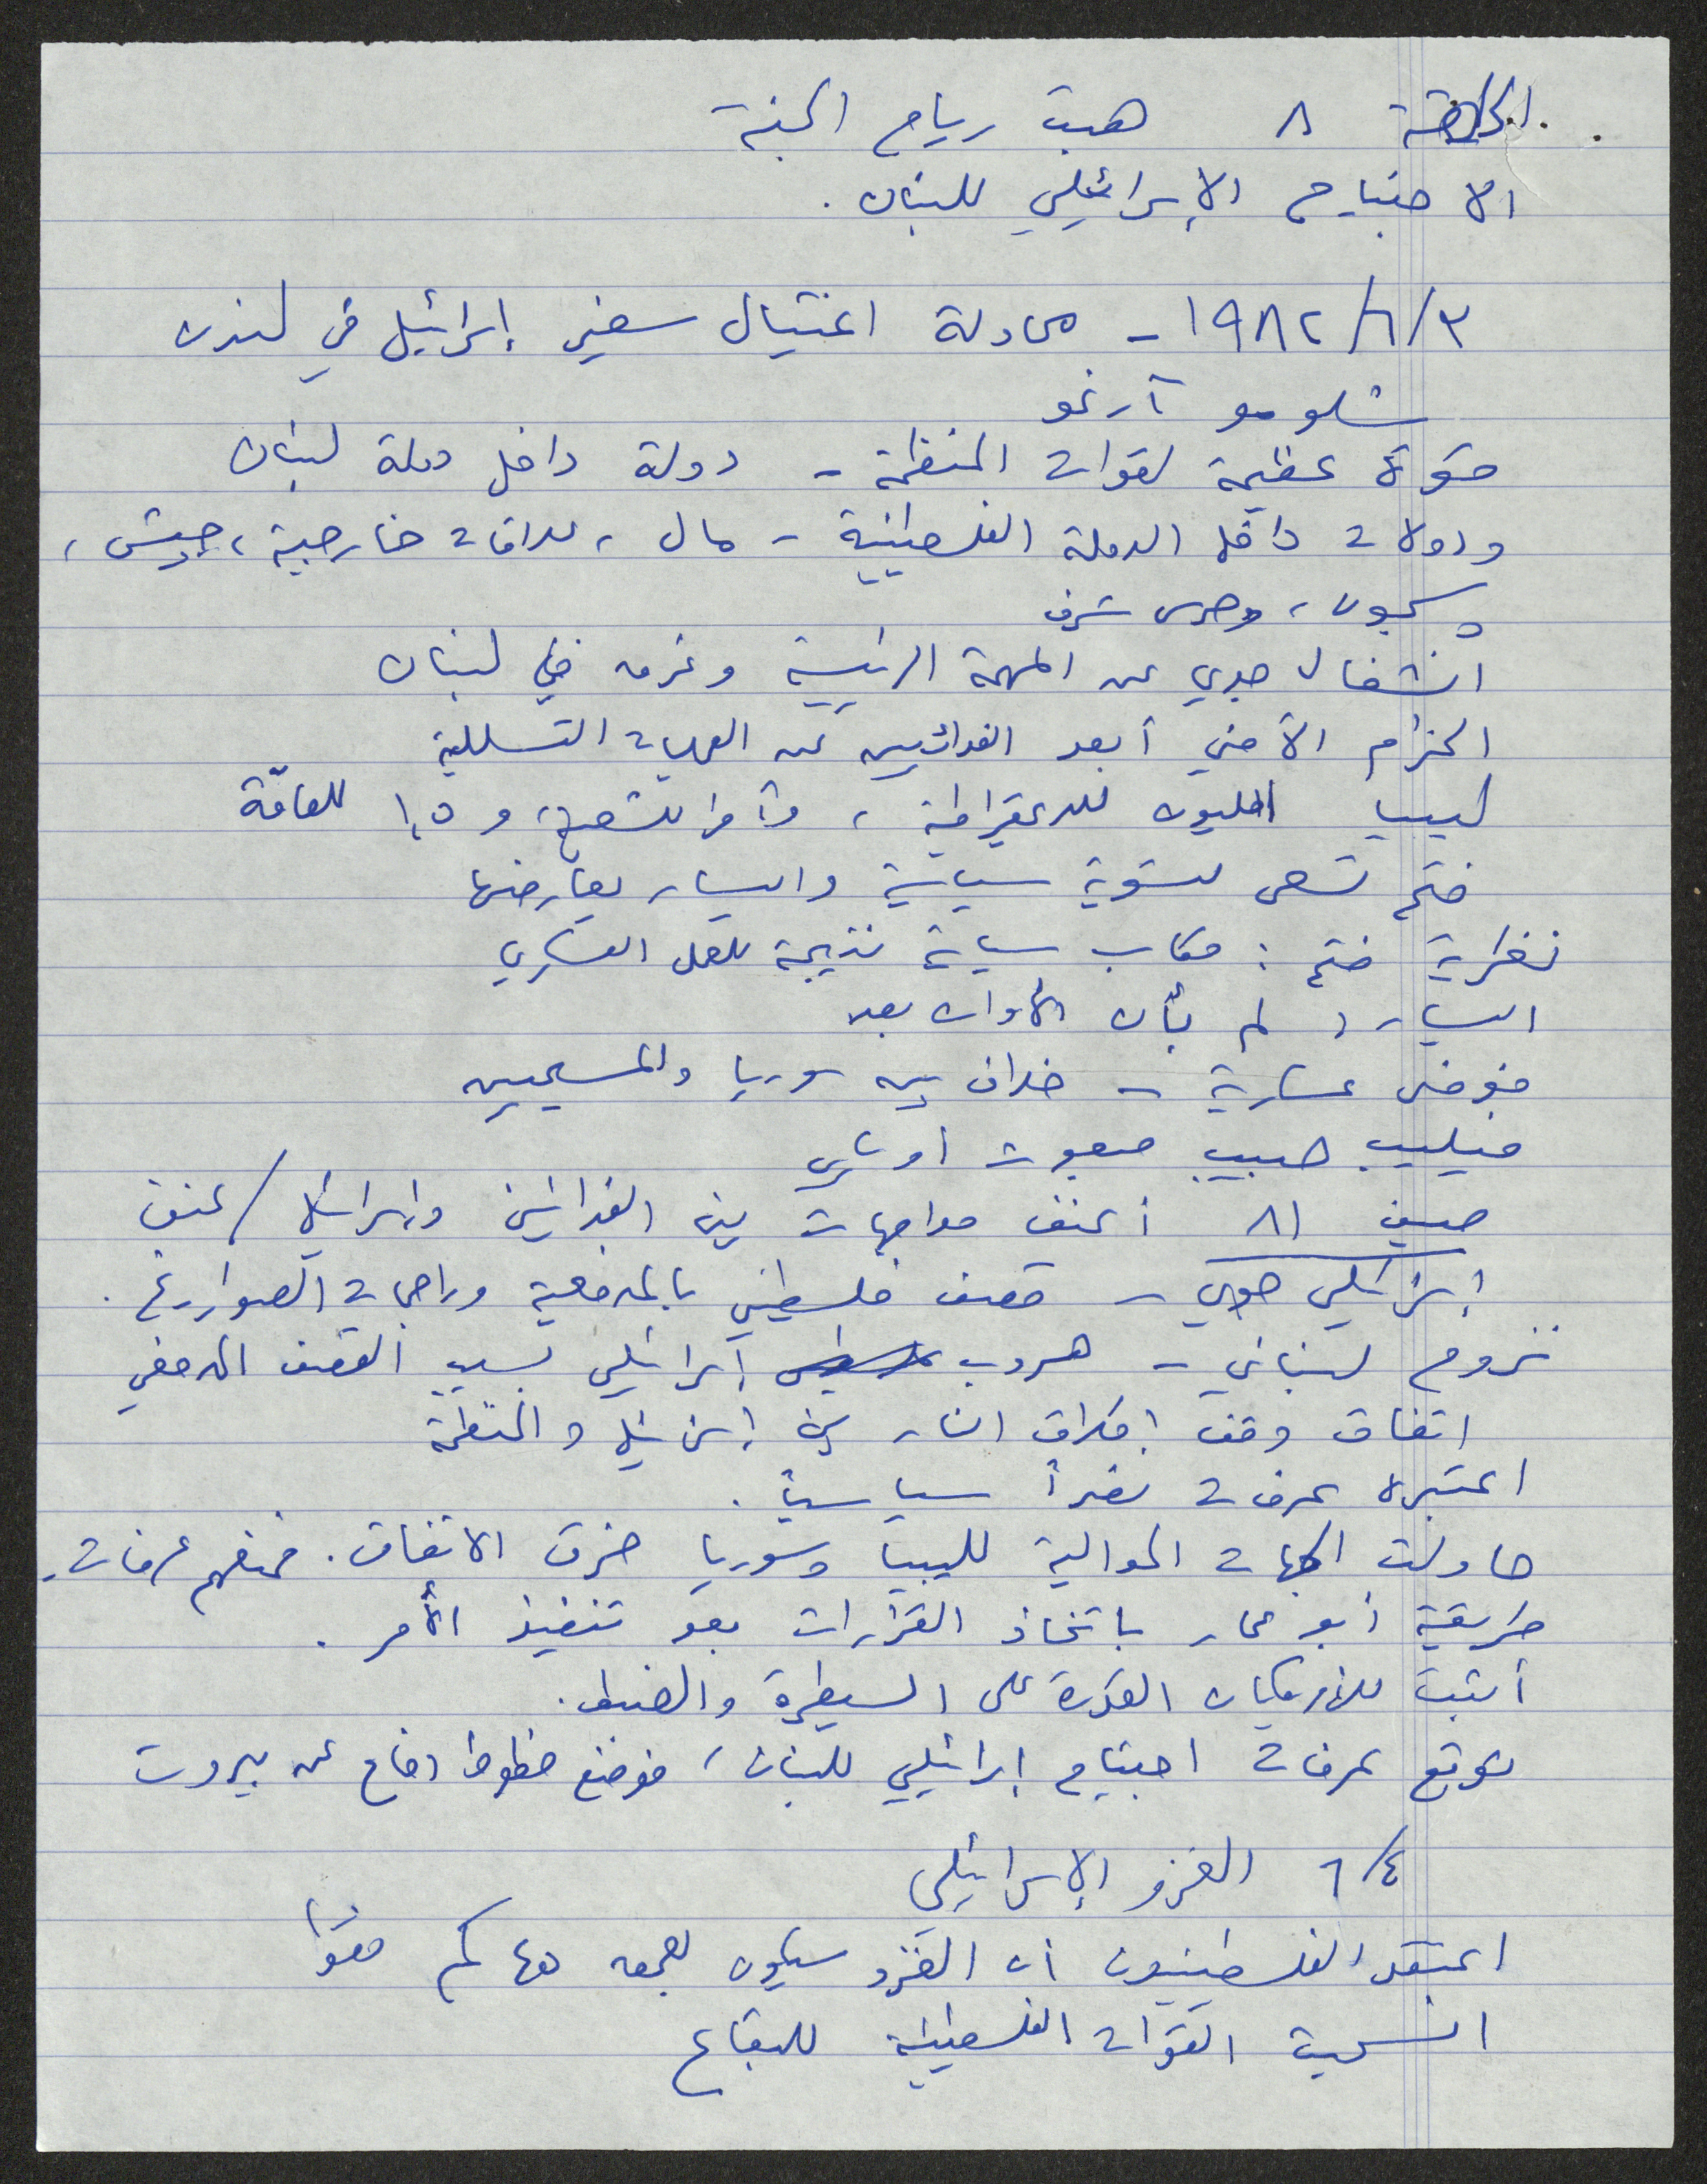 الحلقة ٨ هبت رياح الجنة
الاجتياح الإسرائيلي للبنان .
١٩٨٢/٦/٣ - محاولة اغتيال سفير إسرائيل في لندن
شلومو آرغو
قوة عظيمة لقوات المنظمة - دولة داخل دولة لبنان
ودولات داخل الدولة الفلسطينية - مال ، علاقات خارجية ، جيش ،
سجون ، وحرس شرف
انشغال جدي عن المهمة الرئيسية وغرق في لبنان
الحزام الأمني أبعد الفدائيين عن العمليات التسللية
ليبيا المليون للديمقراطية ، و للشعبية ، و ١,٥ للعامّة
فتح تسعى لتسوية سياسية واليسار يعارضها
نظرية فتح : مكاسب سياسية نتيجة للعمل العسكري
اليسار : لم يأن الأوان بعد
فوضى عسكرية - خلاف بين سوريا والمسيحيين
فيليب حبيب مبعوث أمريكي
صيف ٨١ أعنف مواجهات بين الفدائيين وإسرائيل / عنف
إسرائيلي جوي - قصف فلسطيني بالمدفعية وراجمات الصواريخ .
نزوح لبناني - هروب إسرائيلي بسبب القصف المدفعي
اتفاق وقف إطلاق النار بين إسرائيل والمنظمة
اعتبره عرفات نصراً سياسياً .
حاولت الجهات الموالية لليبيا وسوريا خرق الاتفاق . فمنعهم عرفات .
طريقة أبو عمار باتخاذ القرارات بعد تنفيذ الأمر .
أثبت للأمريكان القدرة على السيطرة والضبط .
توقع عرفات اجتياح إسرائيلي للبنان ، فوضع خطوط دفاع عن بيروت
٦/٤ الغزو الإسرائيلي
اعتقد الفلسطينيون أن الغزو سيكون بعمق ٤٥ كم
انسحبت القوات الفلسطينية للبقاع